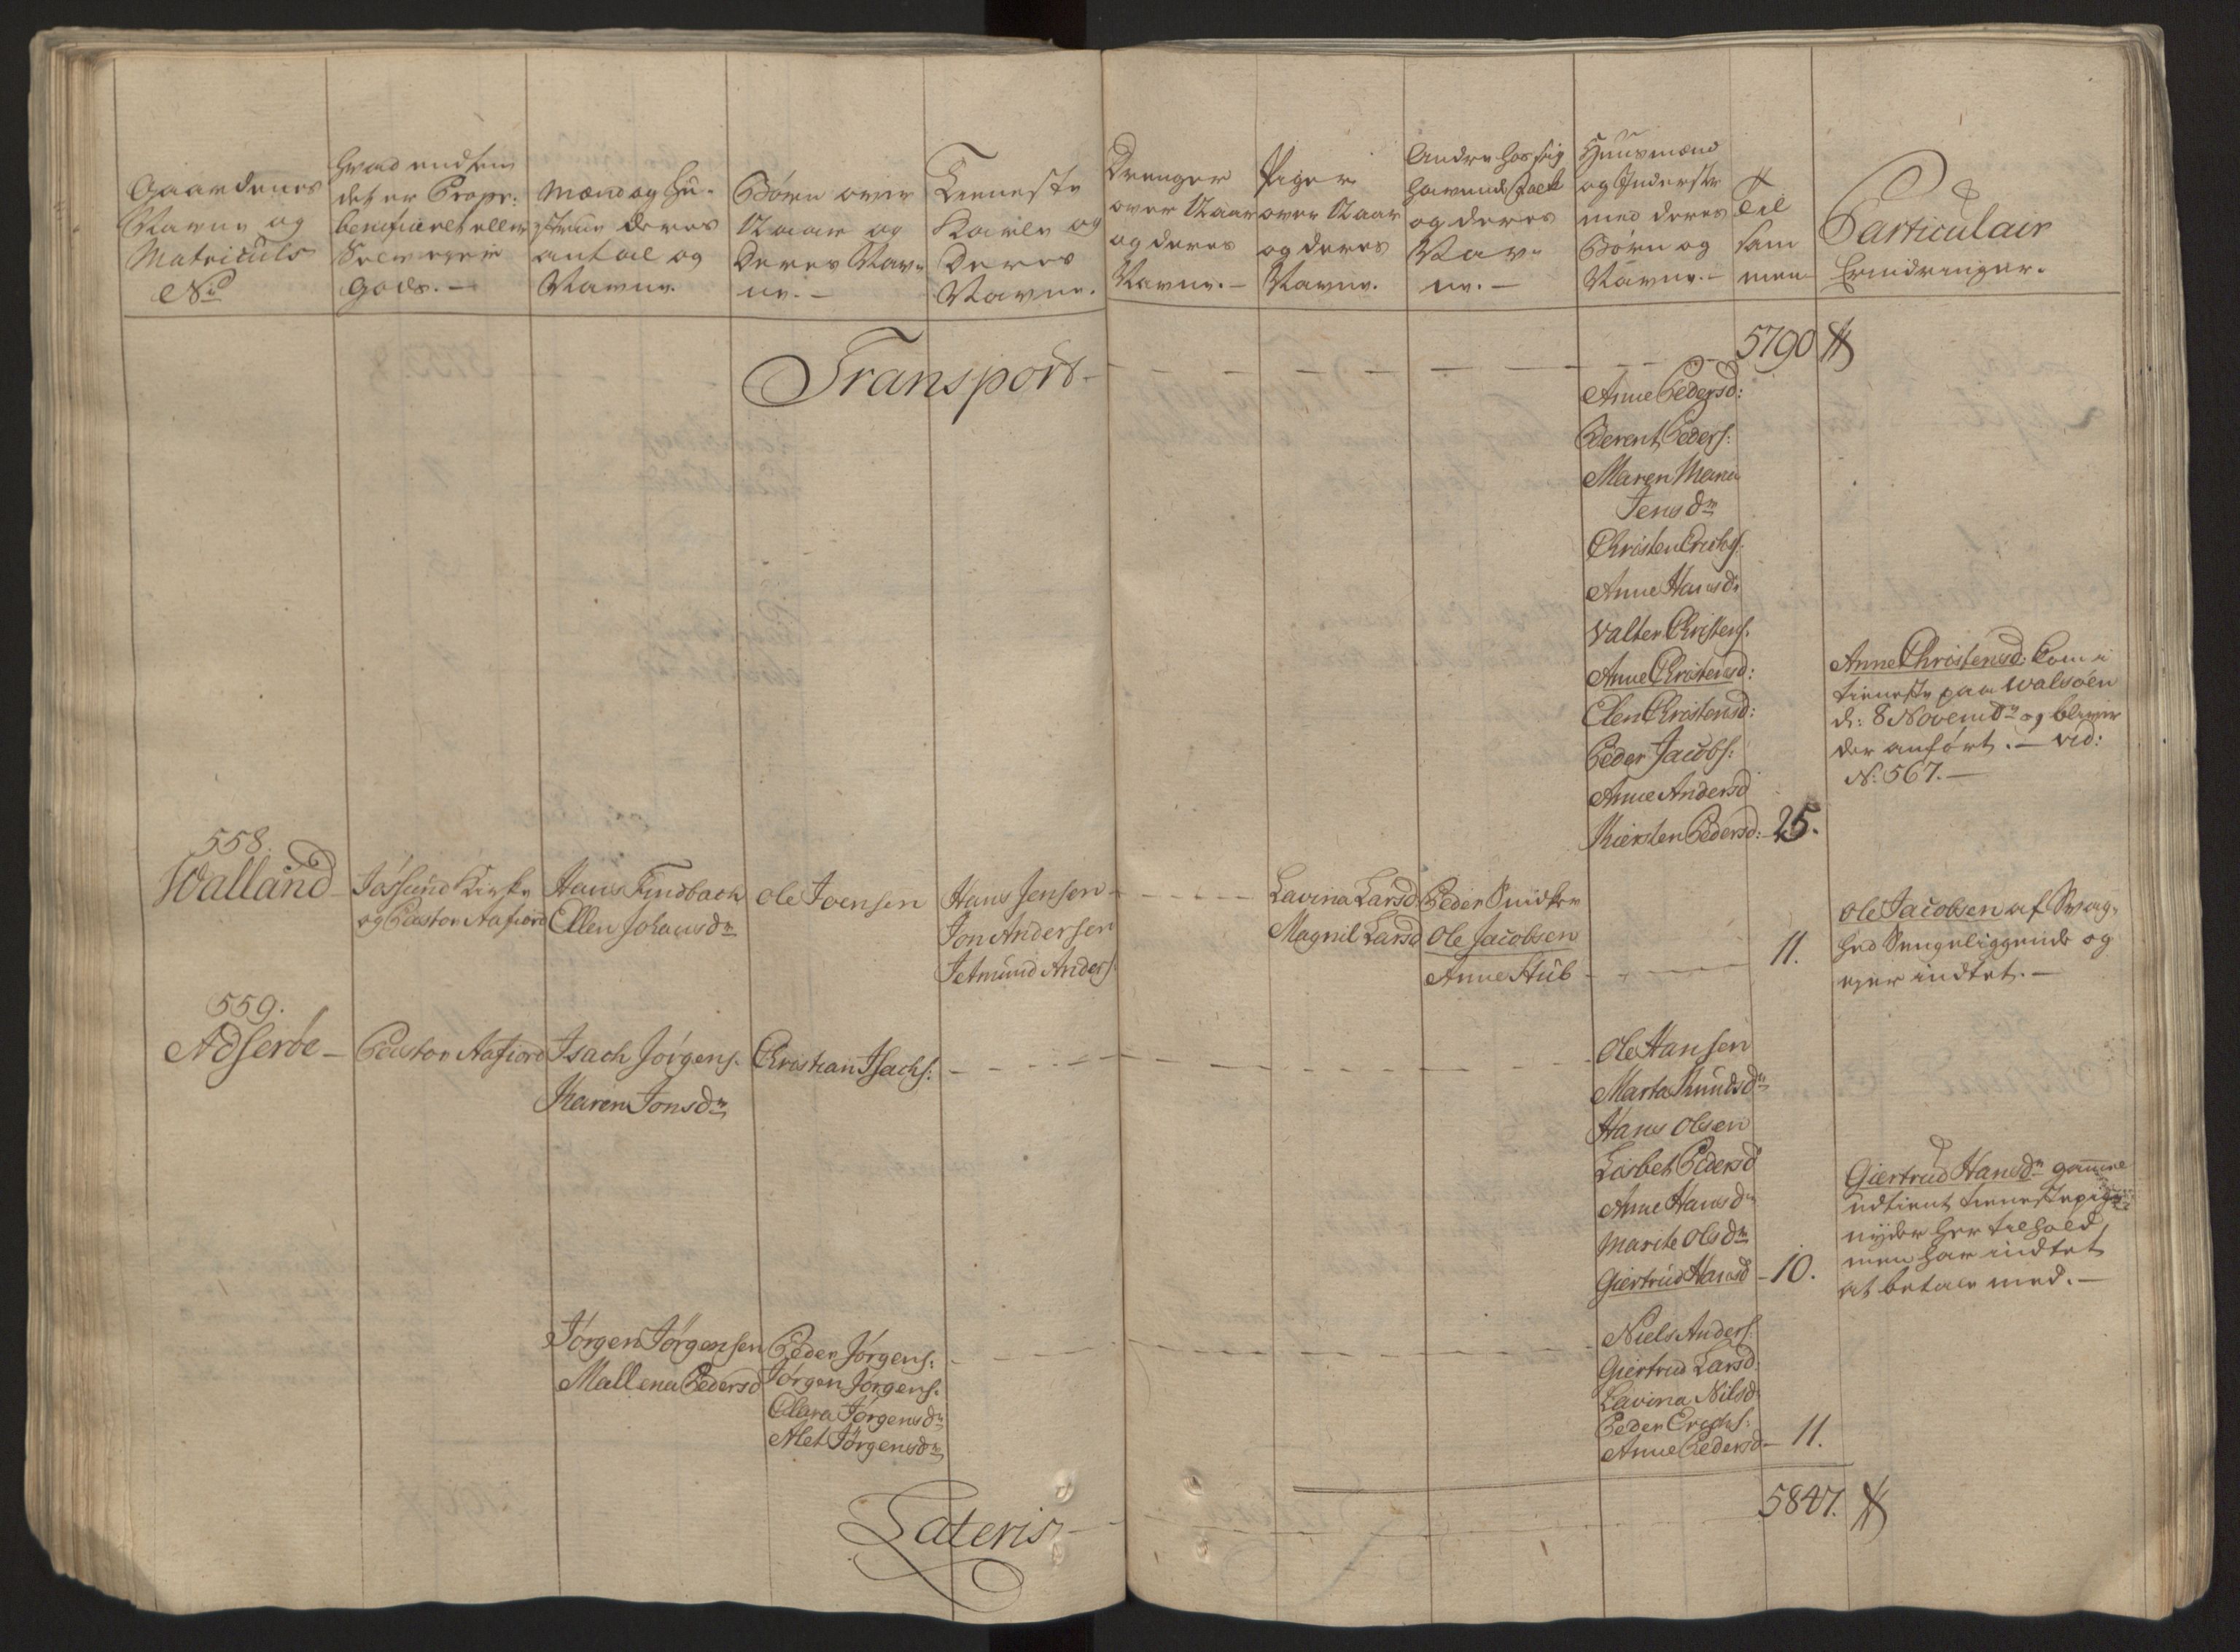 Gaardenes
Navne og
Matriculs
No
Hvad enten
det er Propr:
beneficeret eller
Selveyer
Gods. —
Mænd og Hu-
struer deres
antal og
Navne.
Børn over
12 Aar og
Deres Nav-
ne. —
Tieneste
Karle og
Deres
Navne.
Drenger
over 12 Aar
og deres
Navne. —
Piger
over 12 Aar
og deres
Navne.
Andre hos sig
havende Folk
og deres
Nav-
ne. —
Huusmænd
og Inderster
med deres
Børn og
Navne. —
Til
sam
men
Particulair
Erindringer.
Transport — 5790
Anne Pedersd:
Berent Peders:
Maren Maria
Jensdr
Christen Erichs:
Anne Hansdr
Valter Christens.
Anne Christensd:
Elen Christensd:
Peder Jacobs:
Anne Andersd
Kiersten Pedersd: 25.
Anne Christensd: kom i
tieneste paa Walsøen
d: 8 Novembr og bliver
der anført. — vid:
No 567. —
558.
Walland —
Jøssund Kirke
og Pastor Aafiord
Hans Findbach
Ellen Johansdr
Ole Joensen
Hans Jensen
Jon Andersen
Jetmund Anders:
Lavina Larsd
Magnil Larsd
Peder Snidker
Ole Jacobsen
Anne Stub
11.
Ole Jacobsen af Svag-
hed Sengeliggende og
eyer indtet. —
559.
Adserøe —
Pastor Aafiord
Isach Jørgens.
Karen Jonsdr
Christian Isachs:
Ole Hansen
Marta Knudsdr
Hans Olsen
Lisbet Pedersd
Anne Hansdr
Marite Olsdr
Giertrud Hansd — 10.
Giertrud Hansdr gamme
udtient tienestepige
nyder her tilhold,
men har indtet
at betale med. —
Jørgen Jørgensen
Mallena Pedersd
Peder Jørgens:
Jørgen Jørgens.
Clara Jørgensdr
Alet Jørgensdr
Niels Anders:
Giertrud Larsd
Lavina Nilsd
Peder Erichs:
Anne Pedersd — 11.
Lateris — 5847.